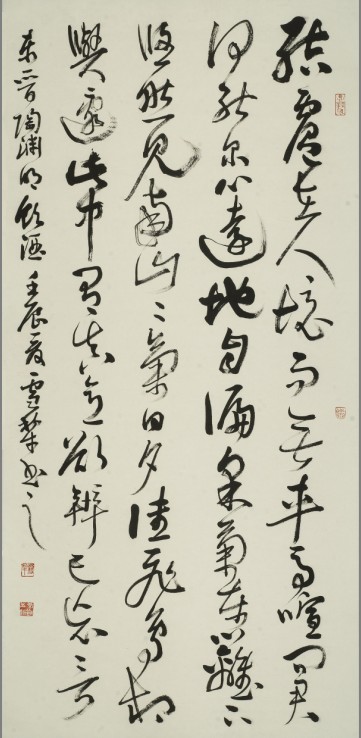 結廬在人境而無車馬喧問君
何能爾心遠地自偏采菊東籬下
悠然見南山〻氣日夕佳飛鳥相
與還此中有真意欲辨已忘言
東晉陶淵明飲酒壬辰夏雲書之